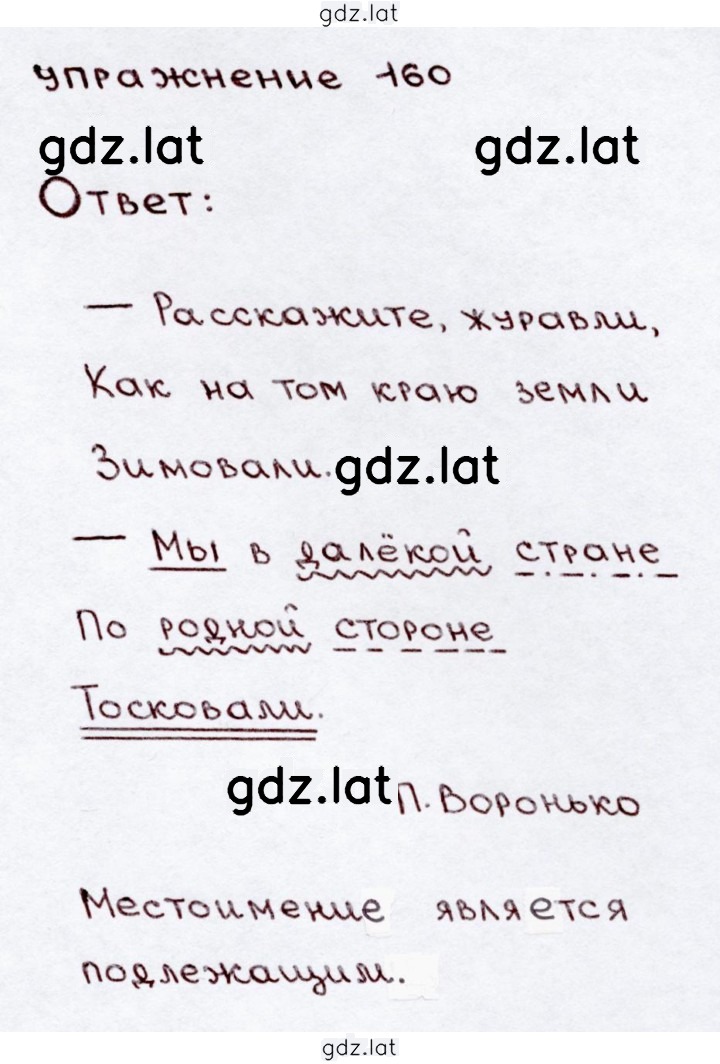 gdz.lat
упражнение 160
gdz.lat gdz.lat
Ответ:
— Расскажите, журавли,
Как на том краю земли
Зимовали. gdz.lat
— Мы в далёкой стране
По родной стороне
Тосковали.
gdz.lat П. Воронько
Местоимение является
подлежащим.
gdz.lat